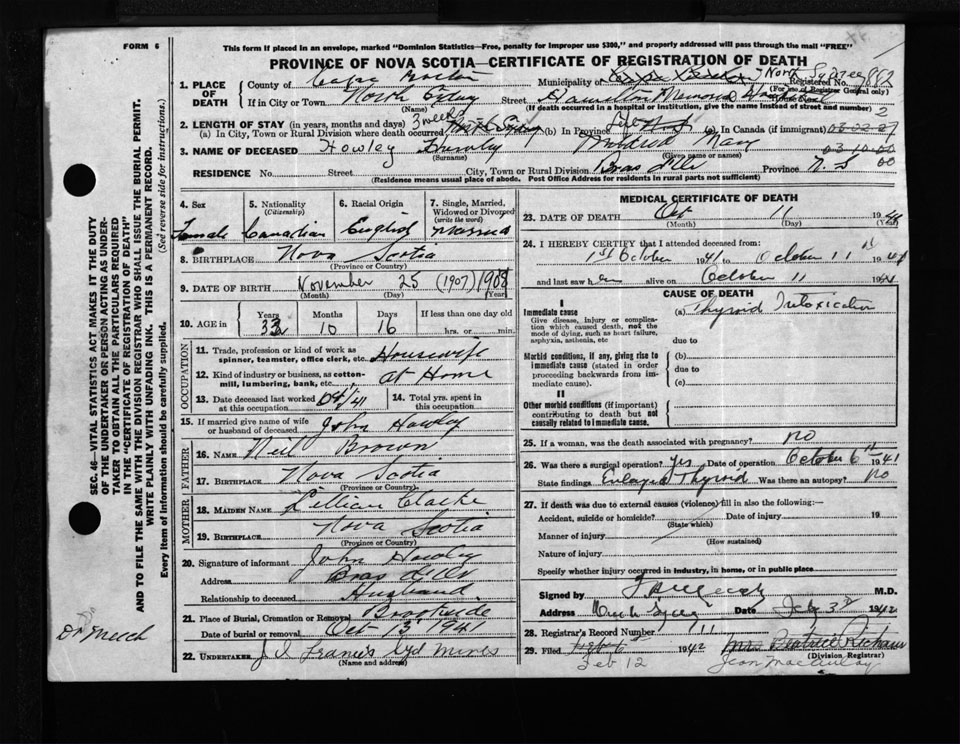 FORM 6
This form if placed in an envelope, marked "Dominion Statistics—Free, penalty for improper use $300," and properly addressed will pass through the mail "FREE"
PROVINCE OF NOVA SCOTIA—CERTIFICATE OF REGISTRATION OF DEATH
1. PLACE OF DEATH
County of Cape Breton Municipality of North Sydney Registered No.
(For use of Registrar General only)
If in City or Town North Sydney Street Hamilton Memorial Hospital
(Name) (If death occurred in a hospital or institution, give name instead of street and number)
2
2. LENGTH OF STAY (in years, months and days)
(a) In City, Town or Rural Division where death occurred 3 weeks North Sydney (b) In Province Life (c) In Canada (if immigrant)
3. NAME OF DECEASED Howley Mary
(Surname) (Given name or names)
RESIDENCE No. Street City, Town or Rural Division Bras Province N. S
(Residence means usual place of abode. Post Office Address for residents in rural parts not sufficient)
4. Sex Female
5. Nationality (Citizenship) Canadian
6. Racial Origin English
7. Single, Married, Widowed or Divorced (write the word) Married
8. BIRTHPLACE Nova Scotia
(Province or Country)
9. DATE OF BIRTH November 25 (1907) 1908
(Month) (Day) (Year)
10. AGE in Years Months Days If less than one day old
33 10 16 hrs. or min.
OCCUPATION
11. Trade, profession or kind of work as spinner, teamster, office clerk, etc. Housewife
12. Kind of industry or business, as cotton-mill, lumbering, bank, etc. At Home
13. Date deceased last worked at this occupation Oct/41
14. Total yrs. spent in this occupation
15. If married give name of wife or husband of deceased John Howley
FATHER
16. NAME Neil Brown
17. BIRTHPLACE Nova Scotia
(Province or Country)
MOTHER
18. MAIDEN NAME Lillian Clarke
19. BIRTHPLACE Nova Scotia
(Province or Country)
20. Signature of informant John Howley
Address Bras
Relationship to deceased Husband
21. Place of Burial, Cremation or Removal Brookside
Date of burial or removal Oct 13 1941
22. UNDERTAKER J. J. Francis Syd Mines
(Name and address)
MEDICAL CERTIFICATE OF DEATH
23. DATE OF DEATH Oct 11 1941
(Month) (Day) (Year)
24. I HEREBY CERTIFY that I attended deceased from:
1st October 1941 to October 11th 1941
and last saw her alive on October 11 1941
CAUSE OF DEATH
I
Immediate cause
Give disease, injury or complication which caused death, not the mode of dying, such as heart failure, asphyxia, asthenia, etc
(a) Thyroid Intoxication
due to
Morbid conditions, if any, giving rise to immediate cause (stated in order proceeding backwards from immediate cause).
(b)
due to
(c)
II
Other morbid conditions (if important) contributing to death but not causally related to immediate cause.
25. If a woman, was the death associated with pregnancy? no
26. Was there a surgical operation? yes Date of operation October 6th 1941
State findings Enlarged Thyroid Was there an autopsy? no
27. If death was due to external causes (violence) fill in also the following:—
Accident, suicide or homicide? Date of injury 19
(State which)
Manner of injury
(How sustained)
Nature of injury
Specify whether injury occurred in industry, in home, or in public place
Signed by M.D.
Address North Sydney Date 3rd 1942
28. Registrar's Record Number 111
29. Filed 1942 Mrs Beatrice
Feb 12 Jean MacAulay
(Division Registrar)
SEC. 46—VITAL STATISTICS ACT MAKES IT THE DUTY
OF THE UNDERTAKER OR PERSON ACTING AS UNDERTAKER TO OBTAIN ALL THE PARTICULARS REQUIRED
IN THE "CERTIFICATE OF REGISTRATION OF DEATH"
AND TO FILE THE SAME WITH THE DIVISION REGISTRAR WHO SHALL ISSUE THE BURIAL PERMIT.
WRITE PLAINLY WITH UNFADING INK. THIS IS A PERMANENT RECORD.
Every item of information should be carefully supplied. (See reverse side for instructions.)